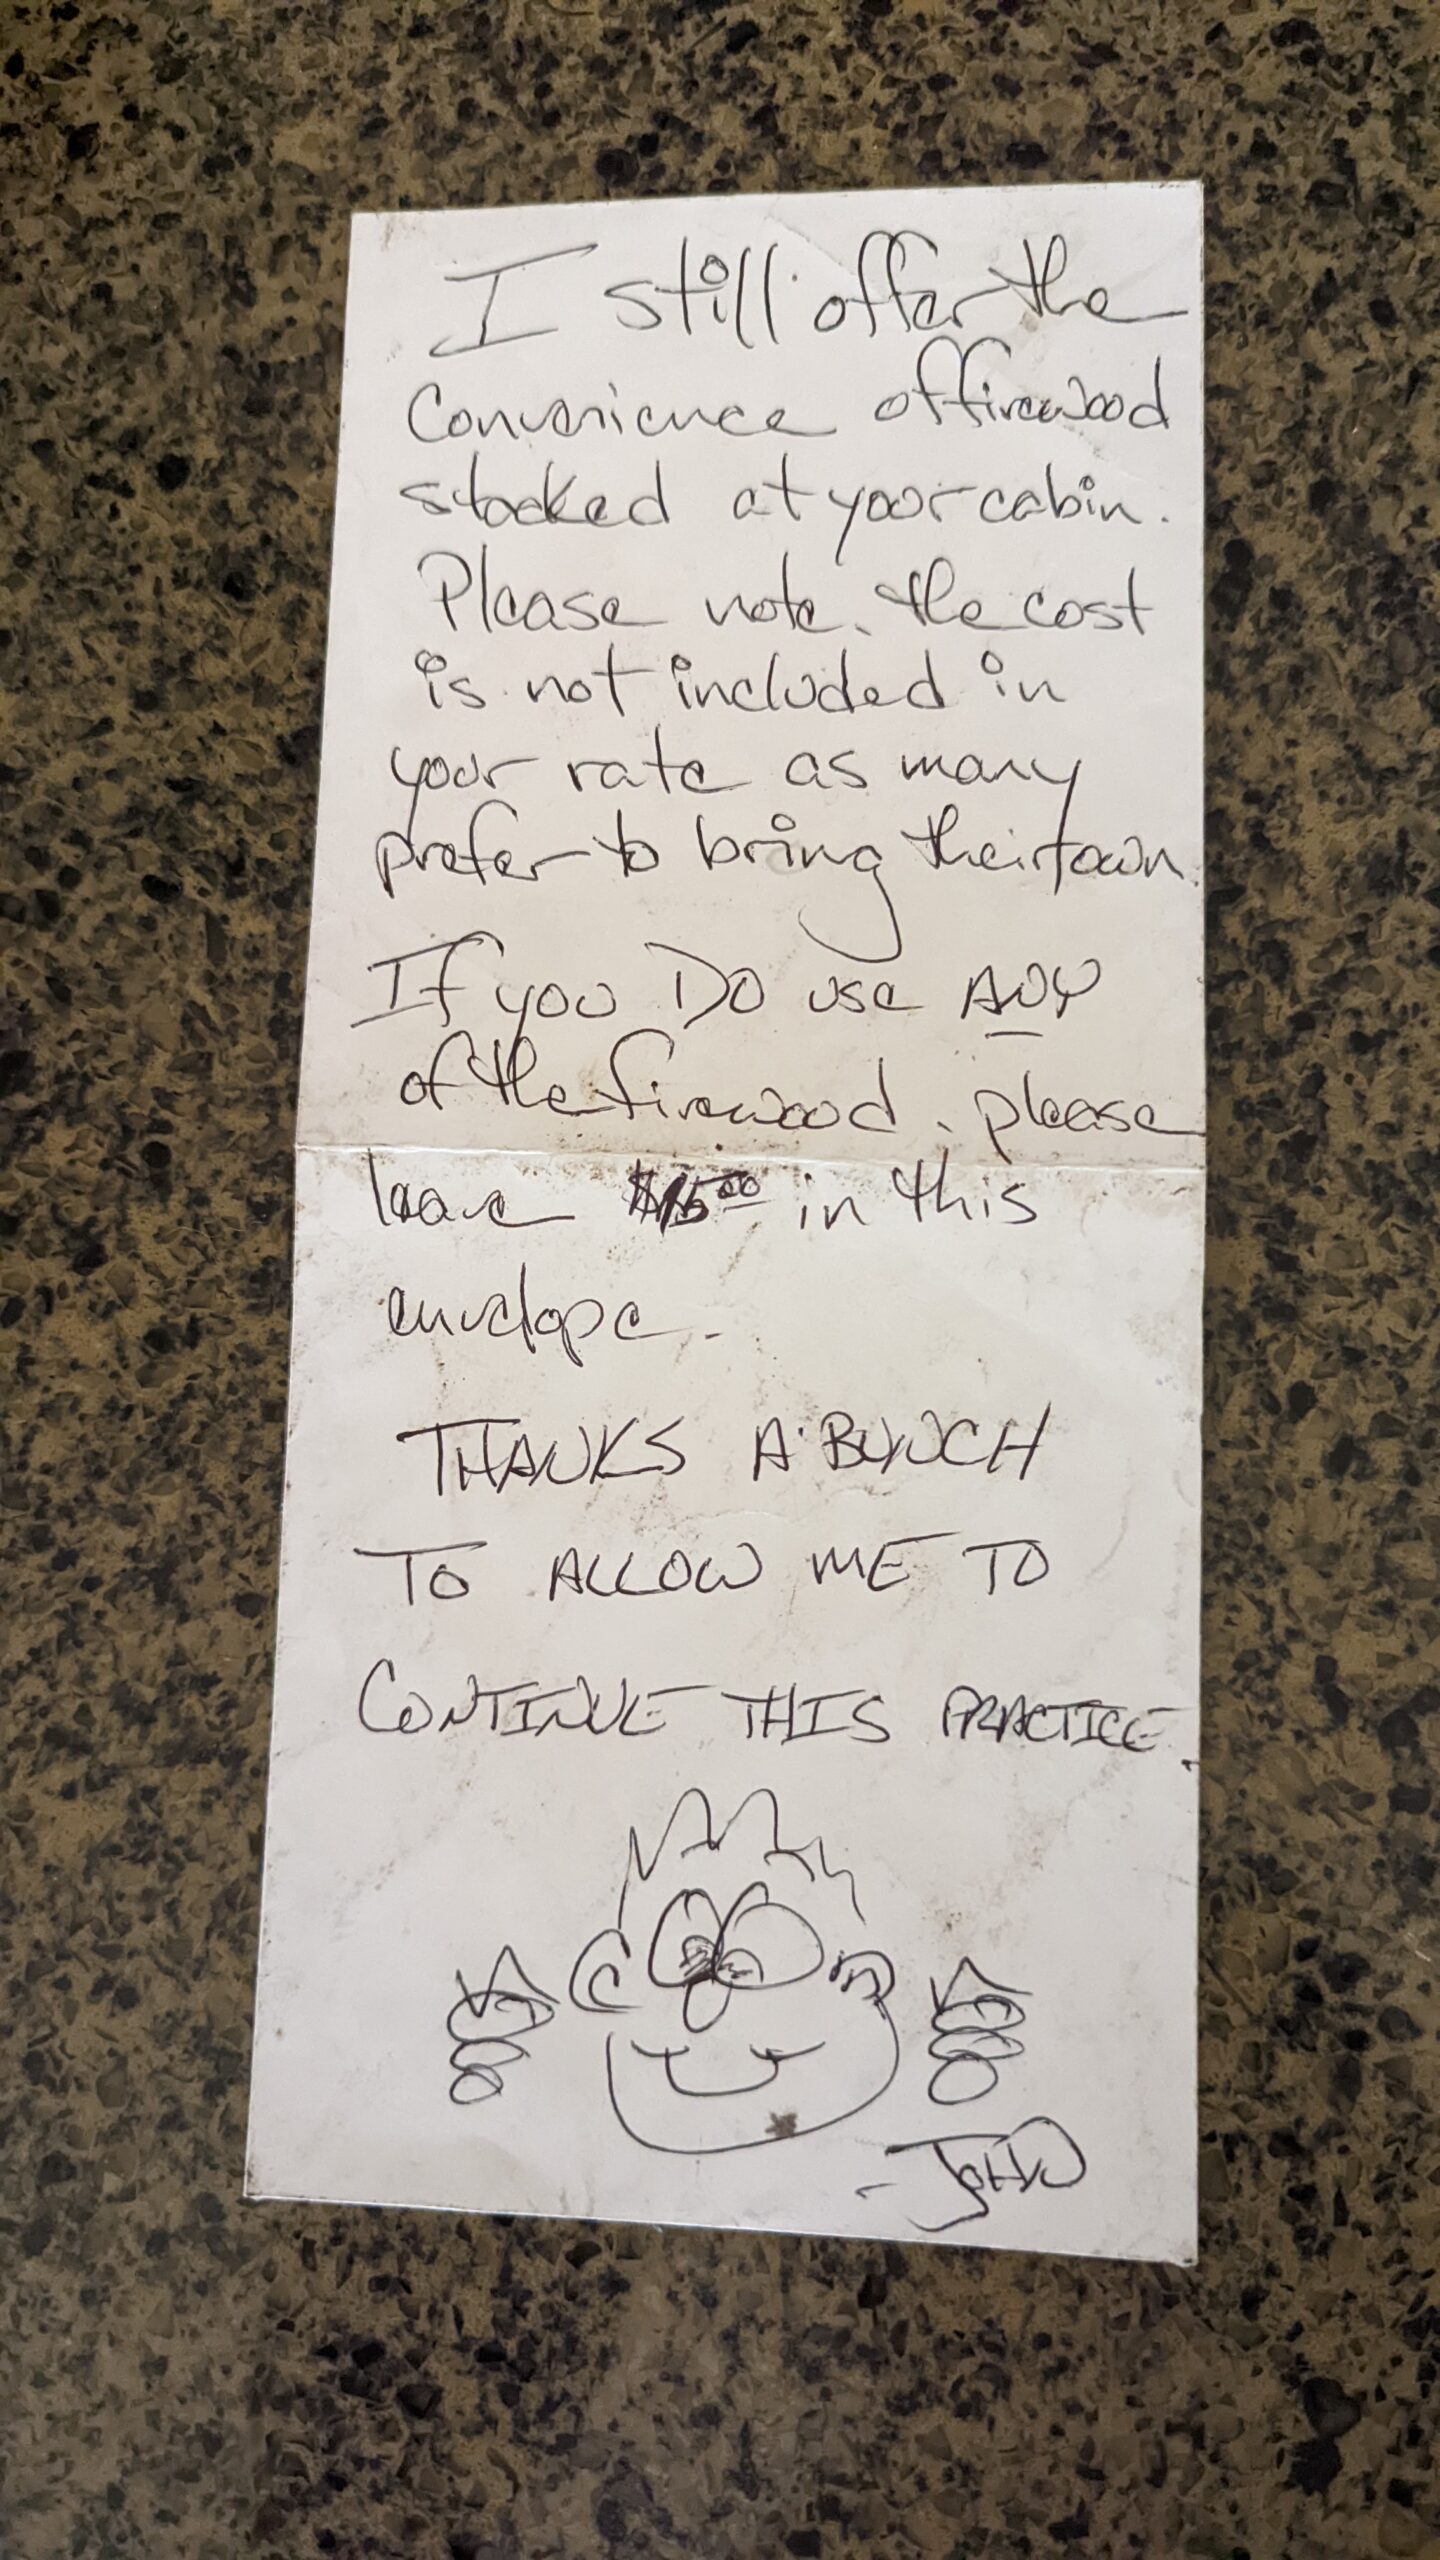 I still offer the
convenience of firewood
stocked at your cabin.
Please note, the cost
is not included in
your rate as many
prefer to bring their own.
If you DO use ANY
of the firewood, please
leave $15.00 in this
envelope.
THANKS A BUNCH
TO ALLOW ME TO
CONTINUE THIS PRACTICE.
- JOHN